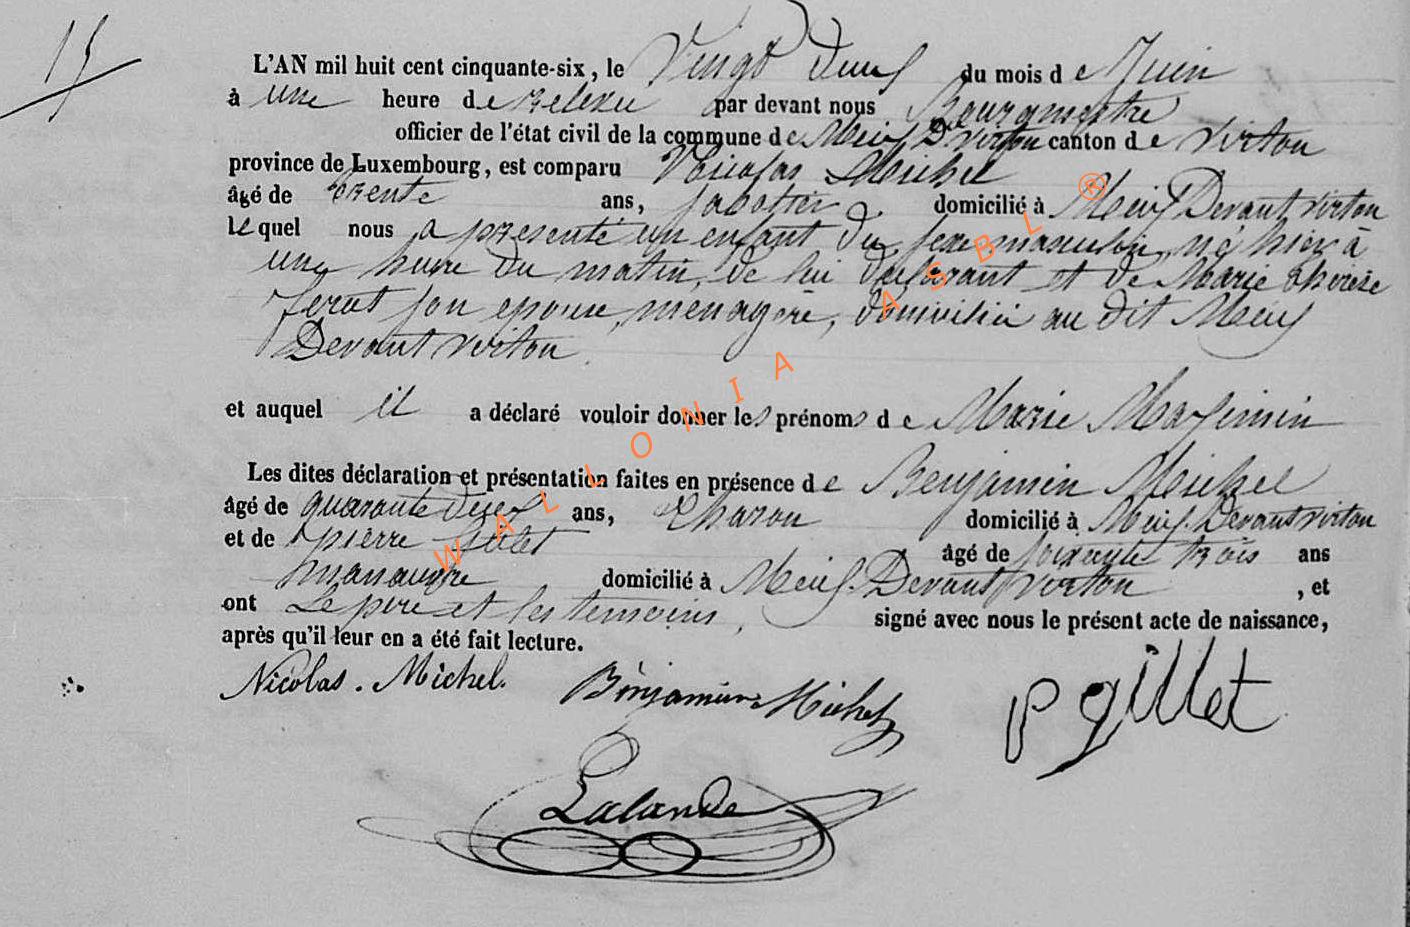 15
L'AN mil huit cent cinquante-six, le Vingt Deux du mois de Juin
à une heure de relevée par devant nous Bourgmestre
officier de l'état civil de la commune de Meix Dt virton canton de virton
province de Luxembourg, est comparu Nicolas Michel
âgé de trente ans, sabotier domicilié à Meix Devant virton
lequel nous a présenté un enfant du sexe masculin, né hier à
une heure du matin, de lui déclarant et de Marie thérèse
ferat son epouse, menagère, domicilié au dit Meix
Devant virton
et auquel il a déclaré vouloir donner les prénoms de Marie Maximin
Les dites déclaration et présentation faites en présence de Benjamin Michel
âgé de quarante deux ans, Charon domicilié à Meix-Devant virton
et de pierre Gillet âgé de soixante trois ans
manoeuvre domicilié à Meix-Devant virton, et
ont Le père et les temoins, signé avec nous le présent acte de naissance,
après qu'il leur en a été fait lecture.
Nicolas. Michel. Bénjamin Michel p gillet
Lalande
WALLONIA ASBL ®